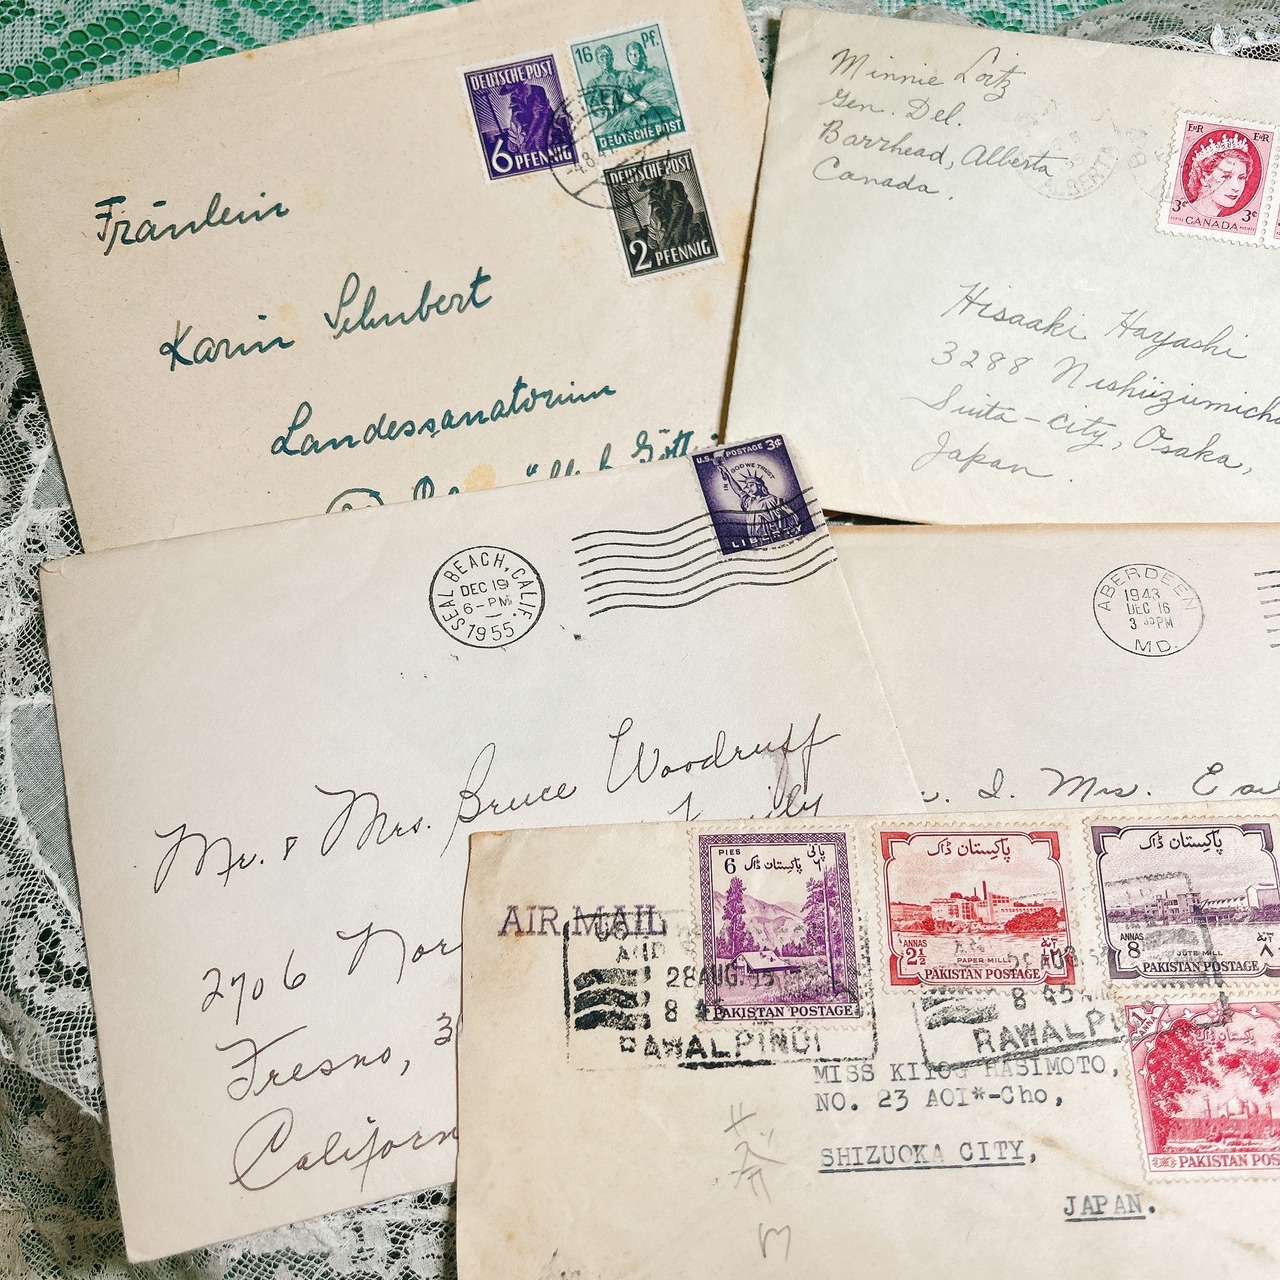 DEUTSCHE POST
6 PFENNIG
16 Pf.
DEUTSCHE POST
DEUTSCHE POST
2 PFENNIG
Fräulein
Karin Schubert
Landessanatorium
Minnie
Gen. Del.
Barrhead, Alberta
Canada
ALBERTA
E II R E II R
3¢ 3¢
CANADA
Hisaaki Hayashi
3288
Suita-city, Osaka,
Japan
U.S. POSTAGE 3¢
IN GOD WE TRUST
LIBERTY
SEAL BEACH, CALIF.
DEC 19
6-PM
1955
Mr. & Mrs. Bruce Woodruff
2706 Nor
Fresno, 3
Californ
ABERDEEN
1943
DEC 16
3 30 PM
MD.
Mrs.
AIR MAIL
PIES
6 پاکستان ڈاک پائی ٦
PAKISTAN POSTAGE
28 AUG.
8 45
RAWALPINDI
پاکستان ڈاک
ANNAS
2½
PAPER MILL
PAKISTAN POSTAGE
AUG.
8 45
RAWALPI
پاکستان ڈاک
ANNAS
8 ٨
JUTE MILL
PAKISTAN POSTAGE
پاکستان ڈاک
PAKISTAN POS
MISS HASIMOTO,
NO. 23 AOI*-Cho,
SHIZUOKA CITY,
JAPAN.